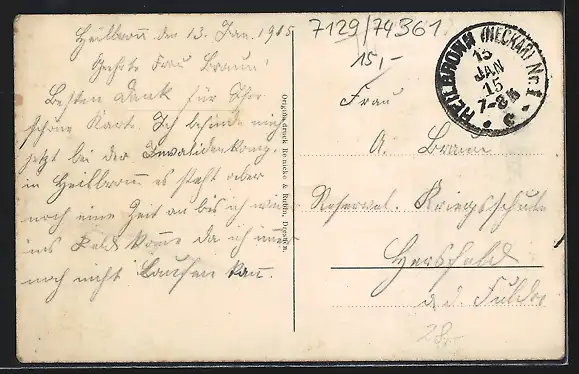 Heilbronn den 13. Jan. 1915
Geehrte Frau Braun!
Besten Dank für Ihre
schöne Karte. Ich befinde mich
jetzt bei der Invalidenkomp.
in Heilbronn es steht aber
noch eine Zeit an bis ich wieder
ins Feld komme da ich immer
noch nicht laufen kann.
Originaldruck Reinicke & Rubin, Dresden.
7129/74361
15,-
HEILBRONN (NECKAR) Nr. 1
13
JAN
15
7-8
c
Frau
A. Braun
Kriegsschule
Hersfeld
a. d. Fulda
28,-